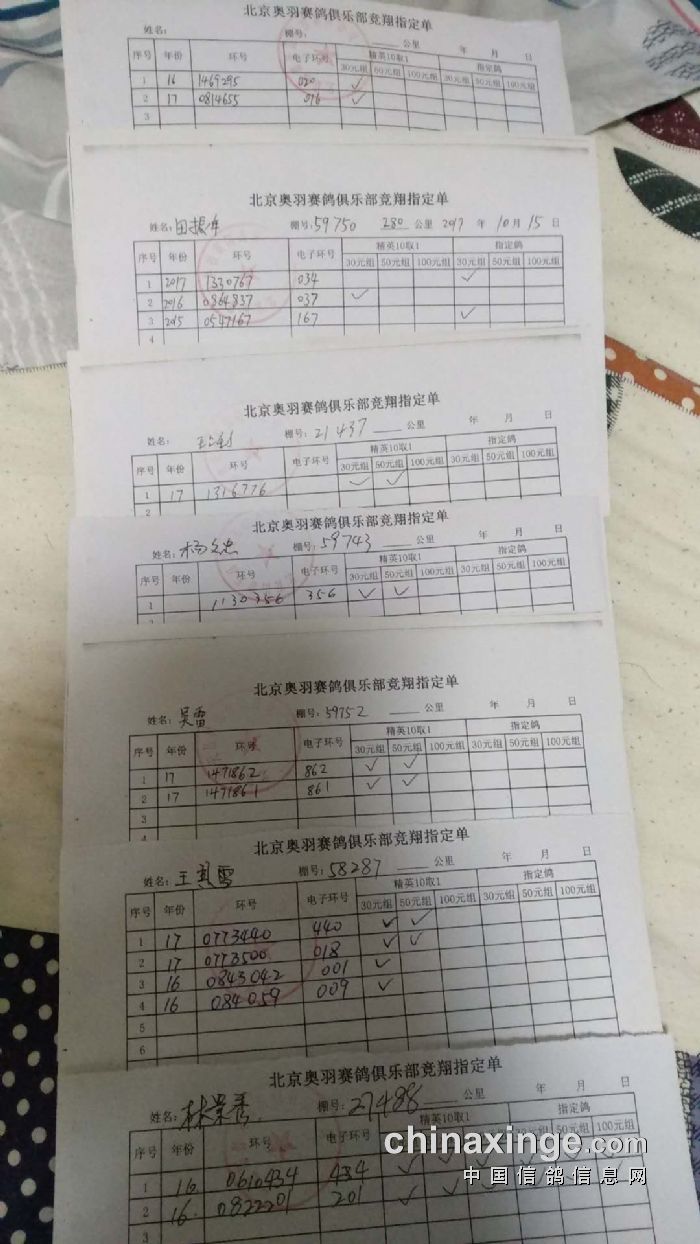 北京奥羽赛鸽俱乐部竞翔指定单
姓名： 棚号： 公里 年 月 日
序号 年份 环号 电子环号 精英10取1 指定鸽
30元组 50元组 100元组 30元组 50元组 100元组
1 16 1469295 020 ✓
2 17 0814655 016 ✓
3
北京奥羽赛鸽俱乐部竞翔指定单
姓名： 棚号：59750 280 公里 2017 年 10 月 15 日
序号 年份 环号 电子环号 精英10取1 指定鸽
30元组 50元组 100元组 30元组 50元组 100元组
1 2017 1330767 034 ✓
2 2016 0864837 037 ✓
3 2015 0547167 167 ✓
4
北京奥羽赛鸽俱乐部竞翔指定单
姓名： 棚号：21437 公里 年 月 日
序号 年份 环号 电子环号 精英10取1 指定鸽
30元组 50元组 100元组 30元组 50元组 100元组
1 17 1316776 ✓ ✓
2
北京奥羽赛鸽俱乐部竞翔指定单
姓名：杨文忠 棚号：59743 公里 年 月 日
序号 年份 环号 电子环号 精英10取1 指定鸽
30元组 50元组 100元组 30元组 50元组 100元组
1 1130356 356 ✓ ✓
北京奥羽赛鸽俱乐部竞翔指定单
姓名：吴雷 棚号：59752 公里 年 月 日
序号 年份 环号 电子环号 精英10取1 指定鸽
30元组 50元组 100元组 30元组 50元组 100元组
1 17 1471862 862 ✓ ✓
2 17 1471861 861 ✓ ✓
3
4
北京奥羽赛鸽俱乐部竞翔指定单
姓名：王其雷 棚号：58287 公里 年 月 日
序号 年份 环号 电子环号 精英10取1 指定鸽
30元组 50元组 100元组 30元组 50元组 100元组
1 17 0773440 440 ✓ ✓
2 17 0773500 018 ✓ ✓
3 16 0843042 001 ✓
4 16 084059 009 ✓
5
6
北京奥羽赛鸽俱乐部竞翔指定单
姓名： 棚号：27488 公里 年 月 日
序号 年份 环号 电子环号 精英10取1 指定鸽
30元组 50元组 100元组 30元组 50元组 100元组
1 16 0610434 434 ✓ ✓ ✓ ✓ ✓ ✓
2 16 0822201 201 ✓ ✓ ✓ ✓
3
chinaxinge.com
中国信鸽信息网